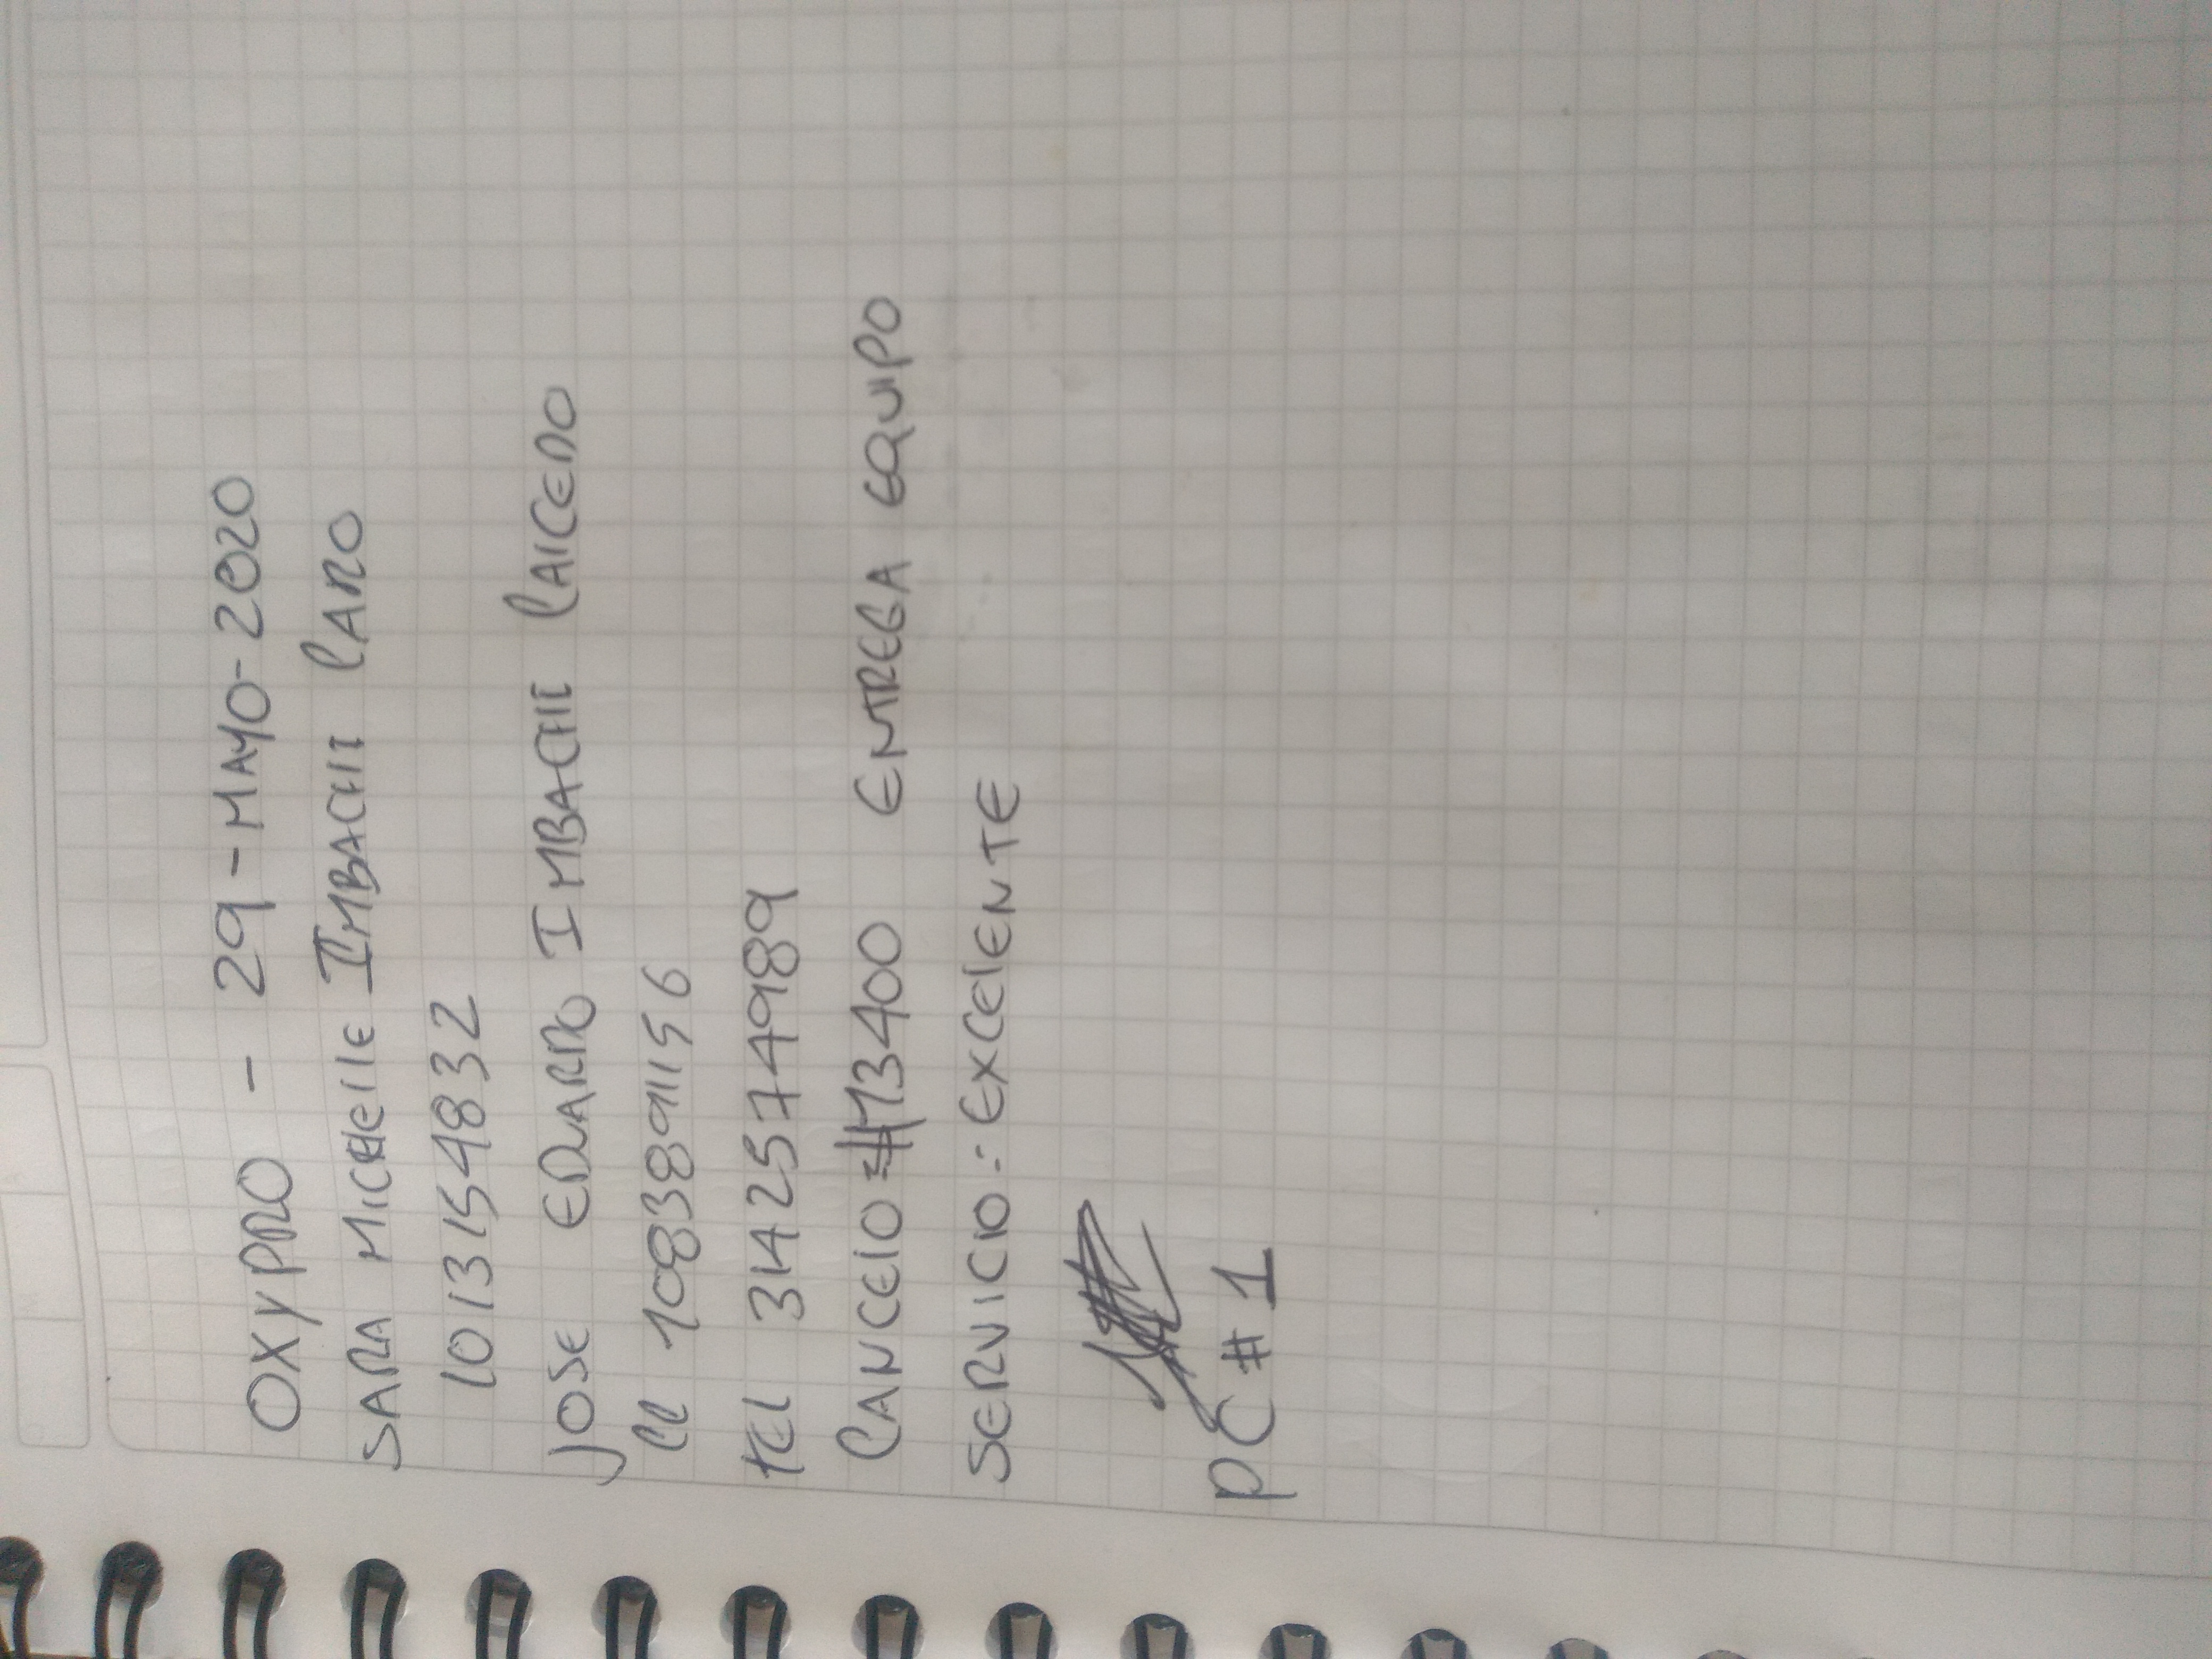 OXYPRO - 29-MAYO-2020
SARA MICHELLE IMBACHI CARO
1013154832
JOSE EDUARDO IMBACHI CAICEDO
CC 1083891156
TEL 3142574989
CANCELO 13400 ENTREGA EQUIPO
SERVICIO: EXCELENTE
PC #1